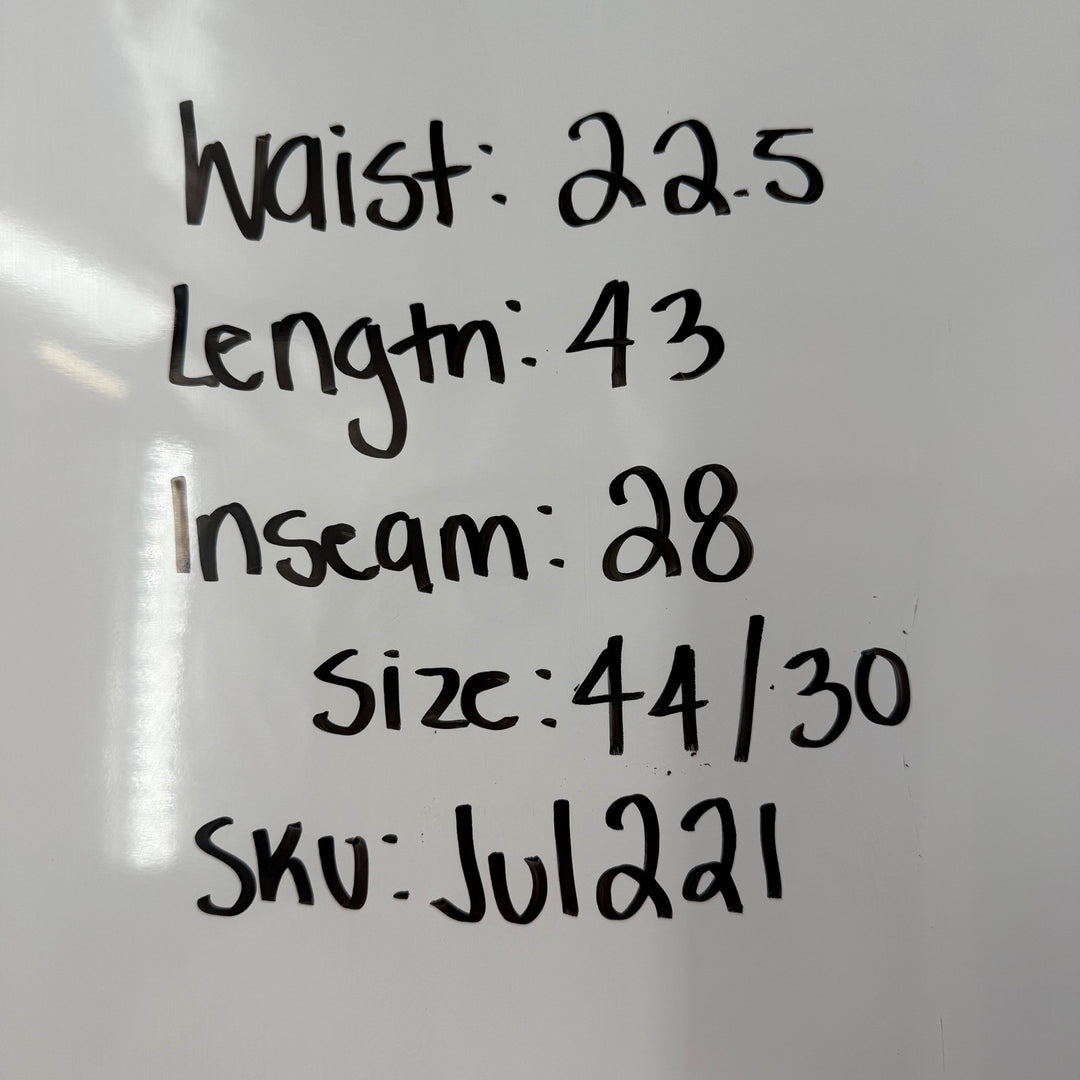 Waist: 22.5
Length: 43
Inseam: 28
Size: 44/30
SKU: Jul221